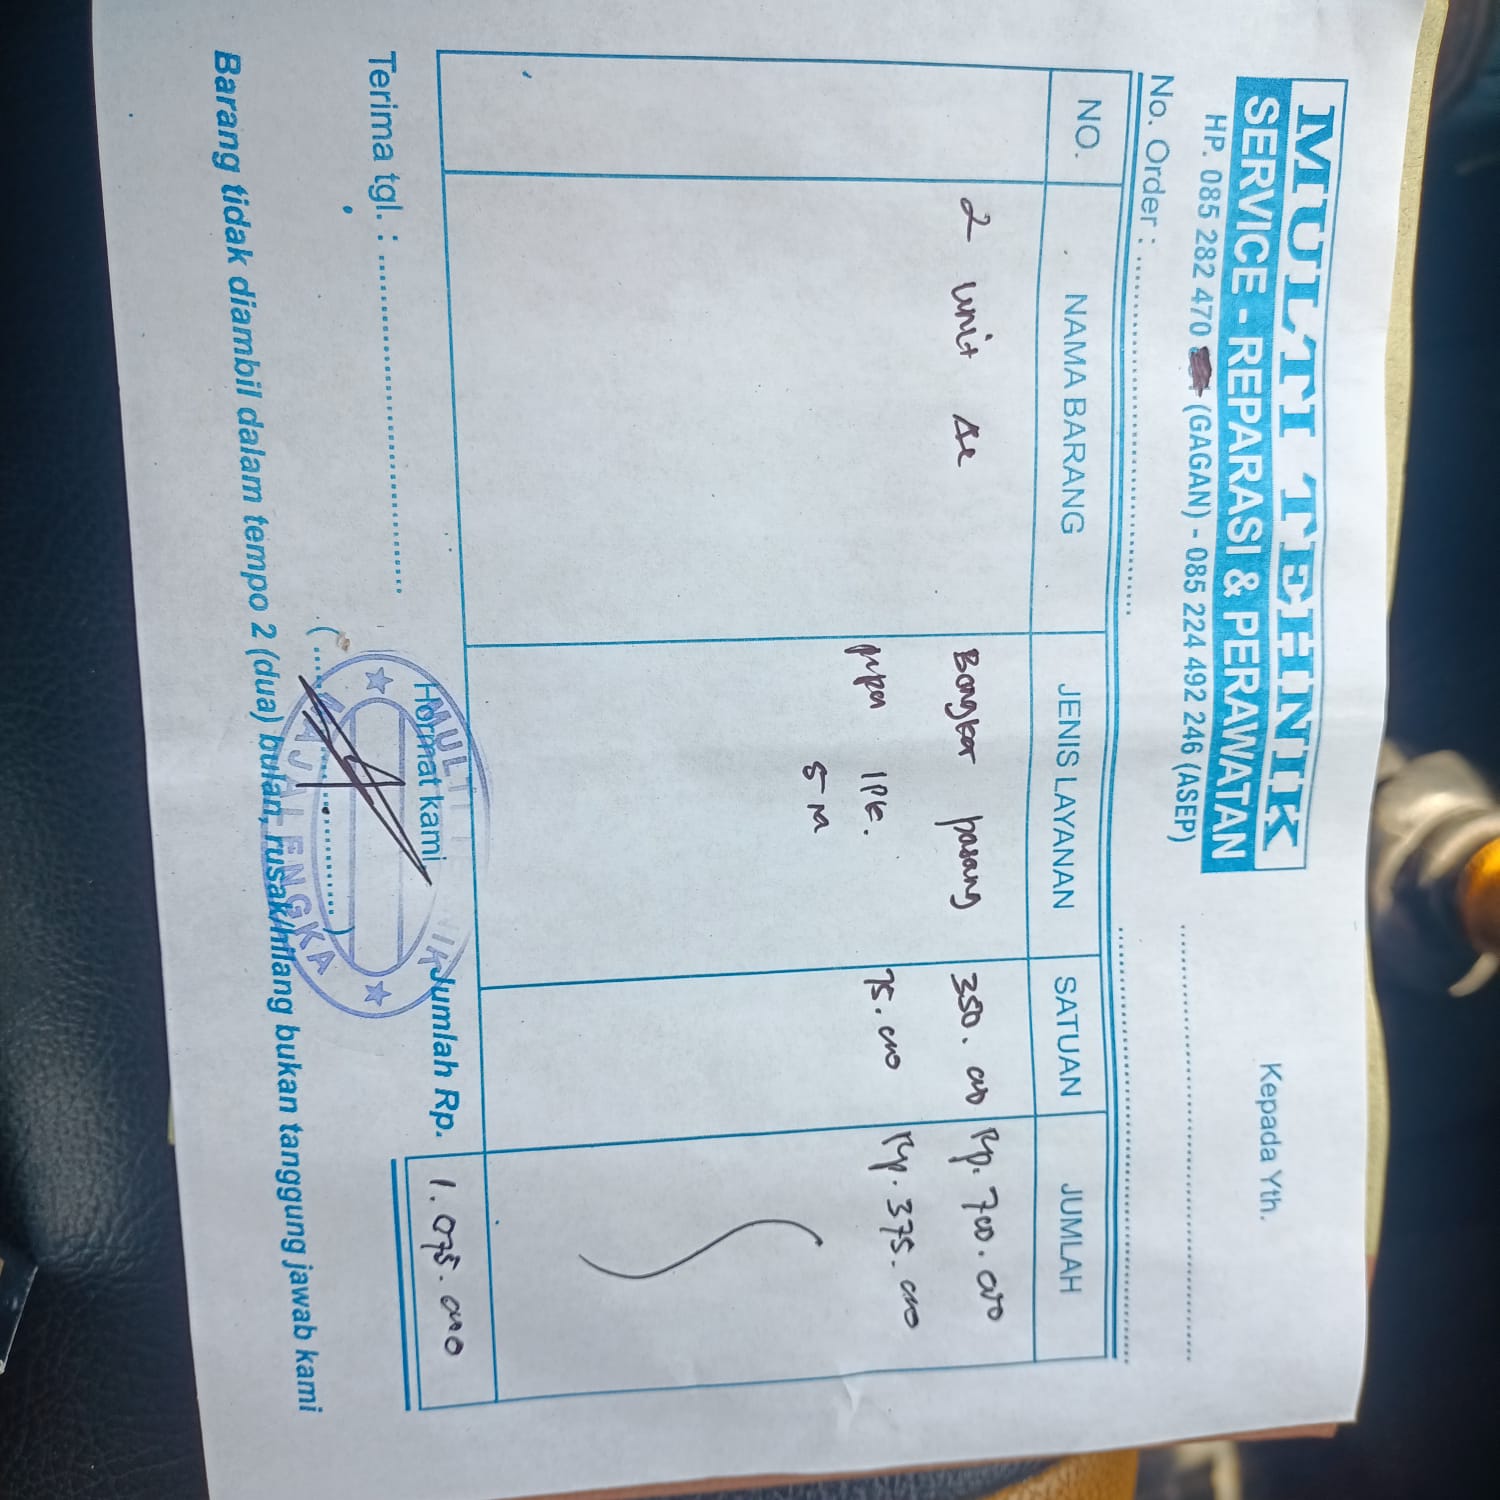 MULTI TEHNIK
SERVICE - REPARASI & PERAWATAN
HP. 085 282 470 (GAGAN) - 085 224 492 246 (ASEP)
Kepada Yth.
No. Order :
NO. NAMA BARANG JENIS LAYANAN SATUAN JUMLAH
2 unit Ac Bongkar pasang 350.000 Rp. 700.000
pipa 1PK. 75.000 Rp. 375.000
5 M
Jumlah Rp. 1.075.000
Terima tgl. :
Hormat kami
MULTI NIK
MAJALENGKA
Barang tidak diambil dalam tempo 2 (dua) bulan, rusak/hilang bukan tanggung jawab kami